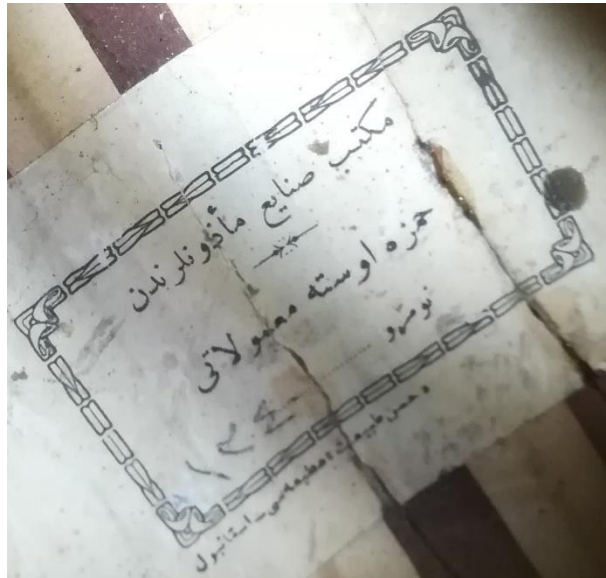 مكتب صنایع مأذونلرندن
حمزه اوسته معمولاتی
نومرو
حسن طبیعت مطبعه سی ـ استانبول